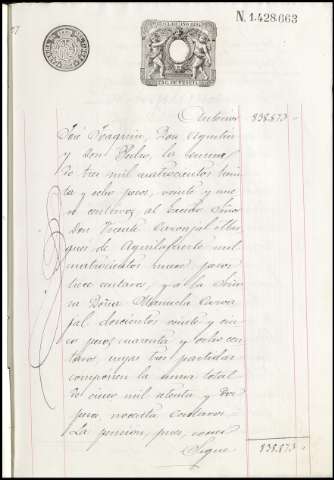 N. 1.428.663
Antonio 838.573
José Joaquin, Don Agustin
y Don Pedro, la suma
de tres mil cuatrocientos
y ocho pesos, veinte y
centavos al Excmo Señor
Don Vicente Carvajal Mar
ques de Aguilafuerte mil
cuatrocientos pesos
trece centavos, y a la
Doña Manuela Carva
jal doscientos veinte y cin
co pesos cuarenta y ocho cen
tavos cuyas tres partidas
componen la suma total
de cinco mil y dos
pesos noventa centavos.
La pension, pues,
Sigue 838.573